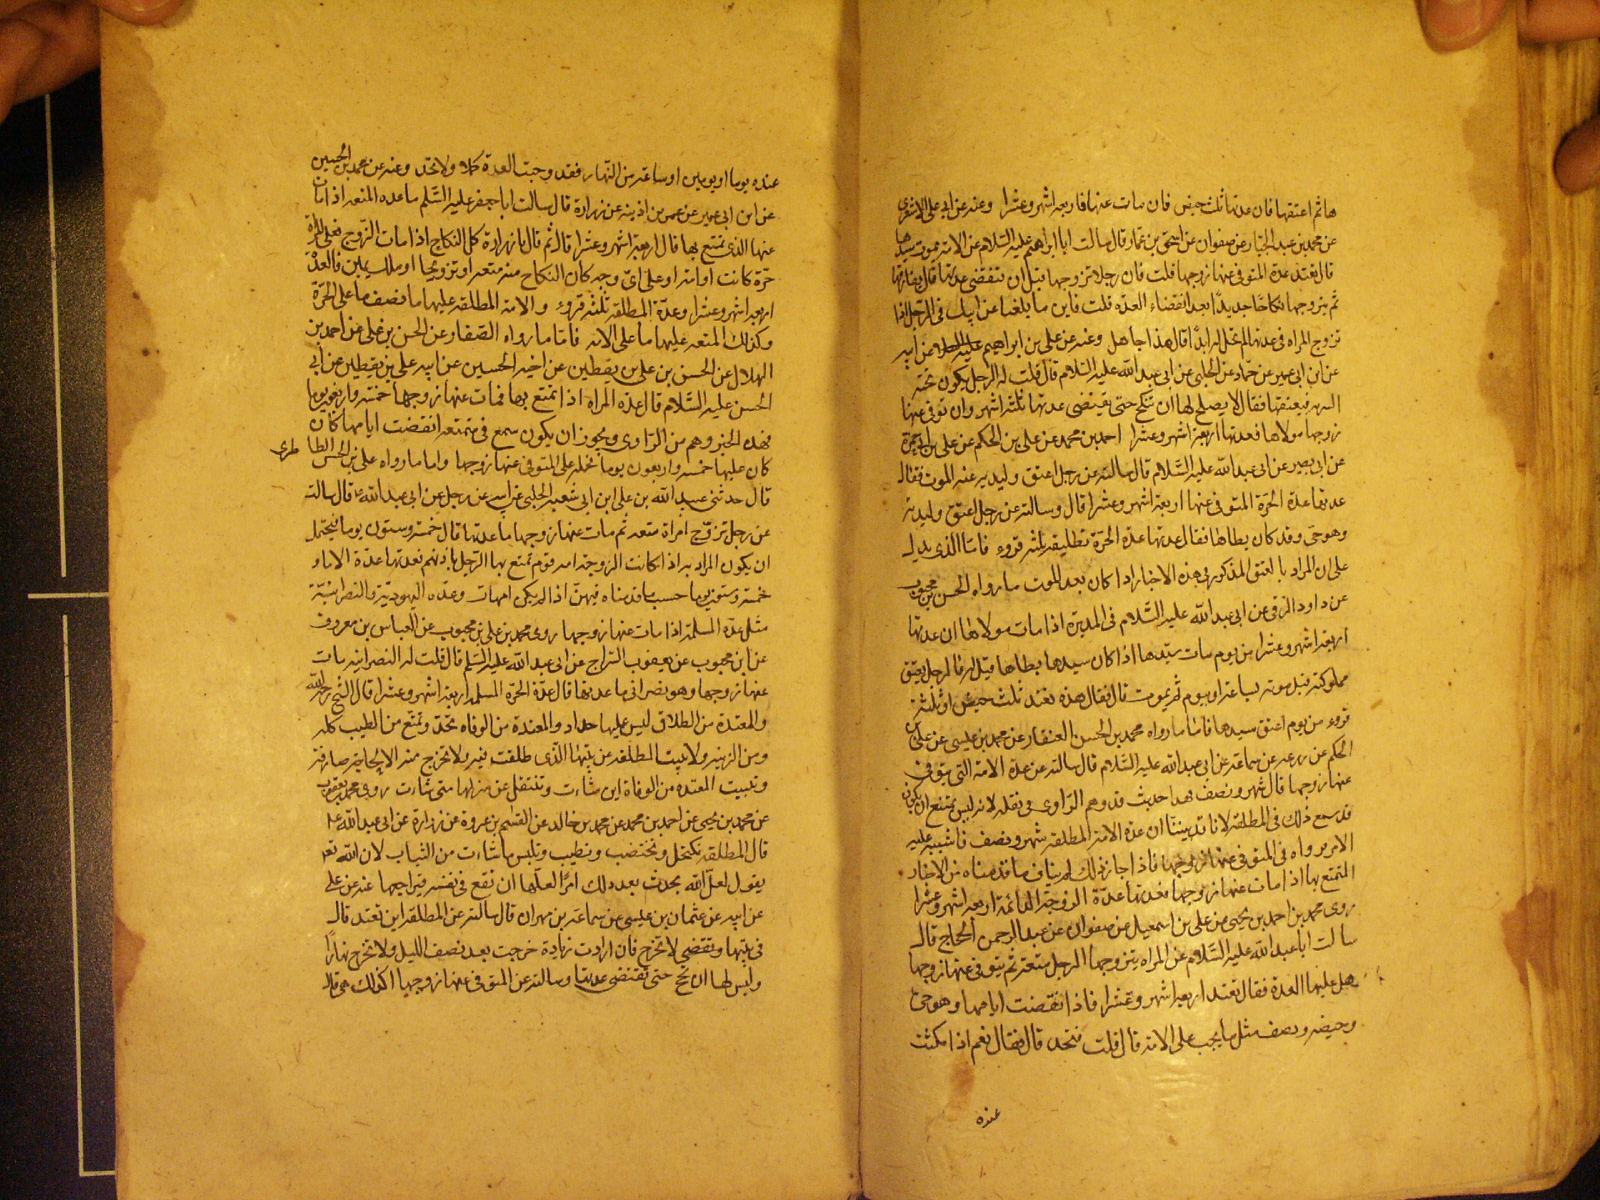 هاثم اعتقها فان عدتها ثلث حيض فان مات عنها فاربعة اشهر وعشرا وعنه عن ابي علي الاشعري
عن محمد بن عبد الجبار عن صفوان عن اسحق بن عمار قال سالت ابا ابراهيم عليه السلام عن الامة يموت سيدها
قال تعتد عدة المتوفى عنها زوجها قلت فان رجلا تزوجها قبل ان تنقضى عدتها قال يفارقها
ثم يتزوجها نكاحا جديدا بعد انقضاء العدة قلت فاين ما بلغنا عن ابيك فى الرجل اذا
تزوج المراه فى عدتها لم تحل له ابدا قال هذا جاهل وعنه عن علي بن ابراهيم عن ابيه
عن ابن ابى عمير عن حماد عن الحلبى عن ابى عبد الله عليه السلام قال قلت له الرجل يكون تحته
السريه فيعتقها فقال لا يصلح لها ان تنكح حتى تنقضى عدتها ثلثة اشهر وان توفى عنها
زوجها مولاها فعدتها اربعة اشهر وعشرا احمد بن محمد عن على بن الحكم عن على بن ابى حمزة
عن ابى بصير عن ابى عبد الله عليه السلام قال سالته عن رجل اعتق وليدته عند الموت فقال
عدتها عدة الحرة المتوفى عنها اربعة اشهر وعشرا قال وسالته عن رجل اعتق وليدته
وهو حى وقد كان يطاها فقال عدتها عدة الحرة المطلقة ثلثة قروء فاما الذى يدل
على ان المراد بالعتق المذكور فى هذه الاخبار اذا كان بعد الموت ما رواه الحسن بن محبوب
عن داود الرقى عن ابى عبد الله عليه السلام فى المدبرة اذا مات مولاها ان عدتها
اربعة اشهر وعشرا من يوم مات سيدها اذا كان سيدها يطاها قيل له فالرجل يعتق
مملوكته قبل موته بساعة او بيوم ثم يموت قال فقال هذه تعتد ثلث حيض او ثلثة
قروء من يوم اعتق سيدها فاما ما رواه محمد بن الحسن الصفار عن محمد بن عيسى عن على بن
الحكم عن زرعه عن سماعة عن ابى عبد الله عليه السلام قال سالته عن عدة الامة التى يتوفى
عنها زوجها قال شهر ونصف فهذا حديث قد وهم الراوى فى نقله لانه ليس يمتنع ان يكون
قد سمع ذلك فى المطلقة لانا قد بيننا ان عدة الامة المطلقة شهر ونصف فاشتبه عليه
الامر فرواه فى المتوفى عنها زوجها فاذا جاز ذلك لم يناف ما قدمناه من الاخبار
المتمتع بها اذا مات عنها زوجها فعدتها عدة الزوجة الدائمة اربعة اشهر وعشرا
روى محمد بن احمد بن يحيى عن على بن اسمعيل عن صفوان عن عبد الرحمن الحجاج قال
سالت ابا عبد الله عليه السلام عن المراه يتزوجها الرجل متعة ثم يتوفى عنها زوجها
هل عليها العدة فقال تعتد اربعة اشهر وعشرا فاذا انقضت ايامها وهو حى
وحيضه ونصف مثل ما يجب على الامة قال قلت فتحد قال فقال نعم اذا مكثت
عنده
عنده يوما او يومين او ساعة من النهار فقد وجبت العدة كملا ولا تحد وعنه عن محمد بن الحسين
عن ابن ابى عمير عن عمر بن اذينه عن زرارة قال سالت ابا جعفر عليه السلم ما عدة المتعة اذا مات
عنها الذى تمتع بها قال اربعة اشهر وعشرا قال ثم قال يا زرارة كل النكاح اذا مات الزوج فعلى المراة
حرة كانت او امة او على اى وجه كان النكاح منه متعة او تزويجا او ملك يمين فالعدة
اربعة اشهر وعشرا وعدة المطلقة ثلثة قروء والامة المطلقة عليها نصف ما على الحرة
وكذلك المتعة عليها ما على الامة فاما ما رواه الصفار عن الحسن بن على عن احمد بن
الهلال عن الحسن بن على بن يقطين عن اخيه الحسين عن ابيه على بن يقطين عن ابى
الحسن عليه السلام قال عدة المراه اذا تمتع بها فمات عنها زوجها خمسة واربعون يوما
فهذه الخبر وهم من الراوى ويجوز ان يكون سمع فى متمتعه انقضت ايامها كان
كان عليها خمسه واربعون يوما فحمله على المتوفى عنها زوجها واما ما رواه على بن الحسن الطا طرى
قال حدثنى عبيد الله بن على ابن ابى شعبه الحلبى عن ابيه عن رجل عن ابى عبد الله ع قال سالته
عن رجل تزوج امراة متعة ثم مات عنها زوجها ما عدتها قال خمسة وستون يوما فيحتمل
ان يكون المراد به اذا كانت الزوجة امة قوم تمتع بها الرجل باذنهم فعدتها عدة الاماء
خمسة وستون يوما حسب ما قدمناه فيهن اذا لم يكن امهات وعدة اليهودية والنصرانية
مثل عدة المسلمة اذا مات عنها زوجها روى محمد بن على بن محبوب عن العباس بن معروف
عن ابن محبوب عن يعقوب السراج عن ابى عبد الله عليه السلم قال قلت له النصرانيه مات
عنها زوجها وهو نصرانى ما عدتها قال عدة الحرة المسلمة اربعة اشهر وعشرا قال الشيخ رحمه الله
والمعتدة من الطلاق ليس عليها حداد والمعتدة من الوفاه تحد وتمتنع من الطيب كله
ومن الزينه ولا تبيت المطلقة عن بيتها الذى طلقت فيه ولا تخرج منه الا لحاجة صادقة
وتبيت المعتدة من الوفاة اين شاءت وتنتقل عن منزلها متى شاءت روى محمد بن يعقوب
عن محمد بن يحيى عن احمد بن محمد عن محمد بن خالد عن القسم بن عروة عن زرارة عن ابى عبد الله ع
قال المطلقة تكتحل وتختضب وتطيب وتلبس ما شاءت من الثياب لان الله تع
يقول لعل الله يحدث بعد ذلك امرا لعلها ان تقع فى نفسه فيراجعها عنه عن على
عن ابيه عن عثمان بن عيسى عن سماعة بن مهران قال سالته عن المطلقة اين تعتد قال
فى بيتها وتقضى لا تخرج فان ارادت زيارة خرجت بعد نصف الليل ولا تخرج نهارا
وليس لها ان تحج حتى تقتضى عدتها وسالته عن المتوفى عنها زوجها اكذلك هى قال